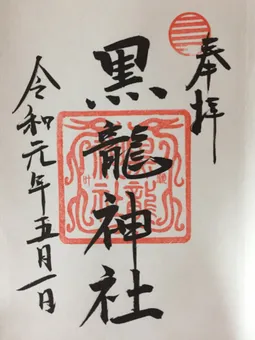 奉拝
黒龍神社
令和元年五月一日